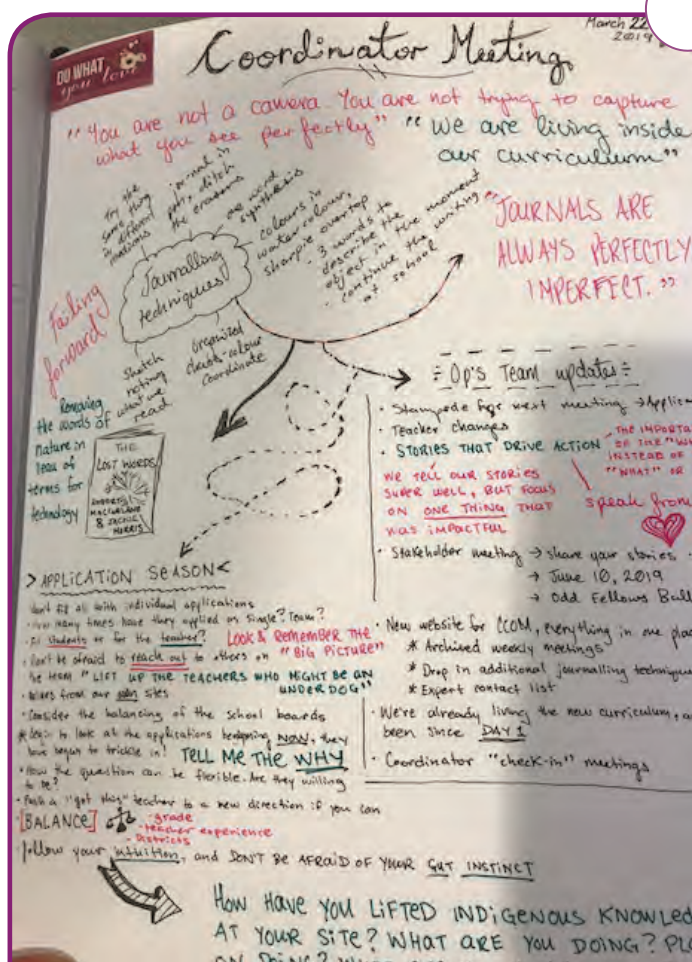 March 22
2019
DO WHAT
you love
Coordinator Meeting
"You are not a camera. You are not trying to capture
what you see perfectly"
"We are living inside
our curriculum"
"JOURNALS ARE
ALWAYS PERFECTLY
IMPERFECT."
try the
same thing
in different
journal in
pen, ditch
the erasers
one word
synthesis
colours in
watercolour,
sharpie overtop
- 3 words to
describe the
object in the moment
- continue the writing
at school
Journalling
techniques
Failing
forward
Sketch
noting
what we
read
organized
colour
coordinate
Removing
the words of
nature in
leau of
terms for
technology
THE
LOST WORDS
ROBERT
MACFARLANE
& JACKIE
MORRIS
÷ Op's Team updates ÷
· Stampede for next meeting →
· Teacher changes
· STORIES THAT DRIVE ACTION
THE
OF THE
INSTEAD OF
"WHAT" OR
WE TELL OUR STORIES
SUPER WELL, BUT FOCUS
ON ONE THING THAT
WAS IMPACTFUL
speak from
· Stakeholder meeting → share your stories
→ June 10, 2019
→ Odd Fellows
· New website for CCOM, everything in one
* Archived weekly meetings
* Drop in additional journalling
* Expert contact list
· We're already living the new curriculum,
been since DAY 1
· Coordinator "check-in" meetings
> APPLICATION SEASON <
with individual applications
many times have they applied as single? Team?
students or for the teacher?
LOOK & REMEMBER THE
"BIG PICTURE"
· Don't be afraid to reach out to others on
the team
"LIFT UP THE TEACHERS WHO MIGHT BE AN
UNDERDOG"
from our own sites
· Consider the balancing of the school boards
to look at the applications beginning NOW, they
have begun to trickle in!
TELL ME THE WHY
· How the question can be flexible. Are they willing
to be?
· Push a "got this" teacher to a new direction if you can
[BALANCE]
- grade
- teacher experience
- Districts
follow your intuition, and DON'T BE AFRAID OF YOUR GUT INSTINCT
HOW HAVE YOU LIFTED INDIGENOUS
AT YOUR SITE? WHAT ARE YOU DOING?